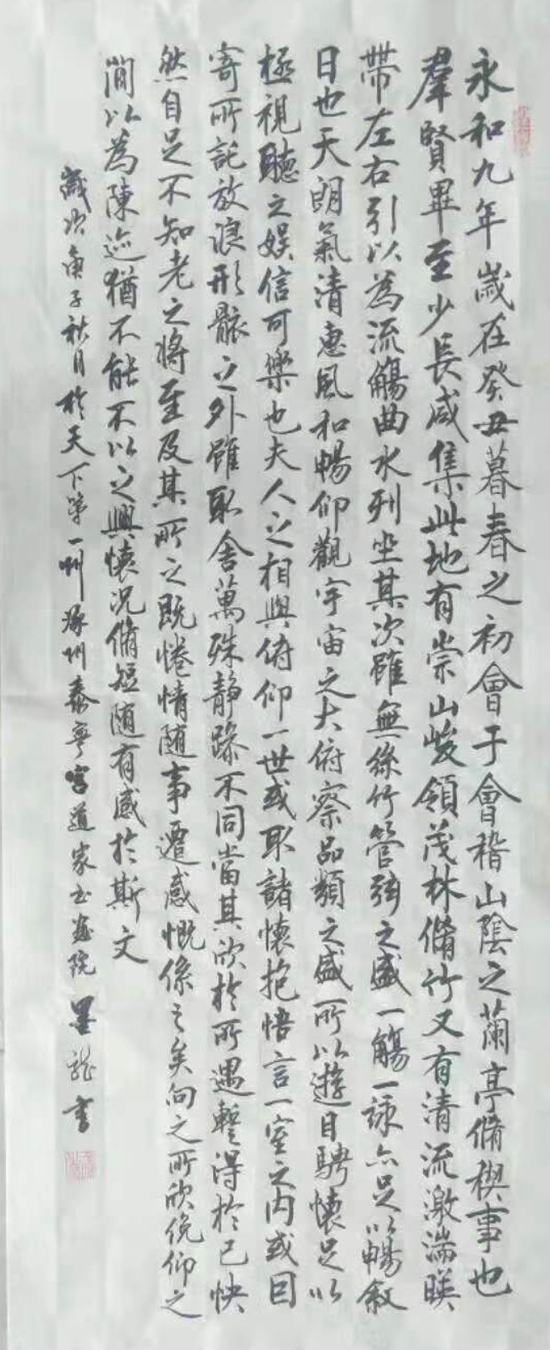 永和九年歲在癸丑暮春之初會于會稽山陰之蘭亭脩稧事也
羣賢畢至少長咸集此地有崇山峻領茂林脩竹又有清流激湍暎
帶左右引以為流觴曲水列坐其次雖無絲竹管弦之盛一觴一詠亦足以暢叙
日也天朗氣清惠風和暢仰觀宇宙之大俯察品類之盛所以遊目騁懷足以
極視聽之娛信可樂也夫人之相與俯仰一世或取諸懷抱悟言一室之内或因
寄所託放浪形骸之外雖取舍萬殊静躁不同當其欣於所遇蹔得於己快
然自足不知老之將至及其所之既惓情随事遷感慨係之矣向之所欣俛仰之
閒以為陳迹猶不能不以之興懷況脩短随有感於斯文
歲次庚子秋月於天下第一州涿州泰寧宫道家书画院 墨龍書